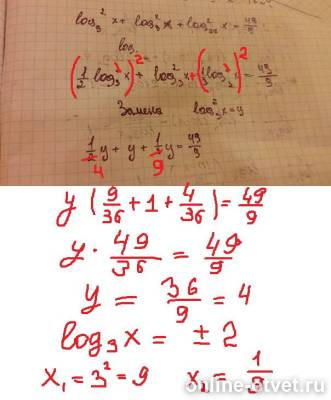 log₉² x + log₃² x + log₂₇² x = 49/9
log
(1/2 log₃ x)² + log₃² x + (1/3 log₃ x)² = 49/9
Замена log₃² x = y
1/4 y + y + 1/9 y = 49/9
y (9/36 + 1 + 4/36) = 49/9
y · 49/36 = 49/9
y = 36/9 = 4
log₃ x = ± 2
x₁ = 3² = 9 x₂ = 1/9
online-otvet.ru